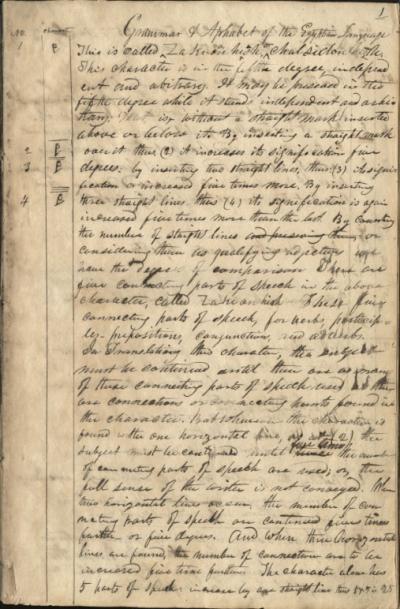 1
Grammar & Alphabet of the Egyptian Language
No. character
1 This is called Za Kioan hish, Chalsidon hish.
This character is in the fifth degree, independ
ent and arbitrary. It may be preserved in the
fifth degree while it stands independent and arbi
trary: That is, without a straight mark inserted
above or below it. By inserting a straight mark
2 over it thus (2) it increases its signification five
3 degrees: by inserting two straight lines, thus: (3) its signi
fication is increased five times more. By inserting
4 three straight lines thus (4) its signification is again
increased five times more than the last. By counting
the number of straight lines and preserving them, or
considering them as qualifying adjectives we
have the degrees of comparison. There are
five connecting parts of speech in the above
character, called Za Kioan hish. These five
connecting parts of speech, for verbs, particip-
les prepositions, conjunctions, and adverbs.
In Translating this character, this subject
must be continued until there are as many
of these connecting parts of speech used as there
are connections or connecting points found in
the character. But whenever the character is
found with one horizontal line, as at (2) the
subject must be continued until five times the number
of connecting parts of speech are used; or, the
full sense of the writer is not conveyed. When
two horizontal lines occur, the number of con
necting parts of speech are continued five times
further or five degrees. And when three horizontal
lines are found, the number of connections are to be
increased five times further. The character alone has
5 parts of speech: increase by one straight line thus 5 x 5 is 25